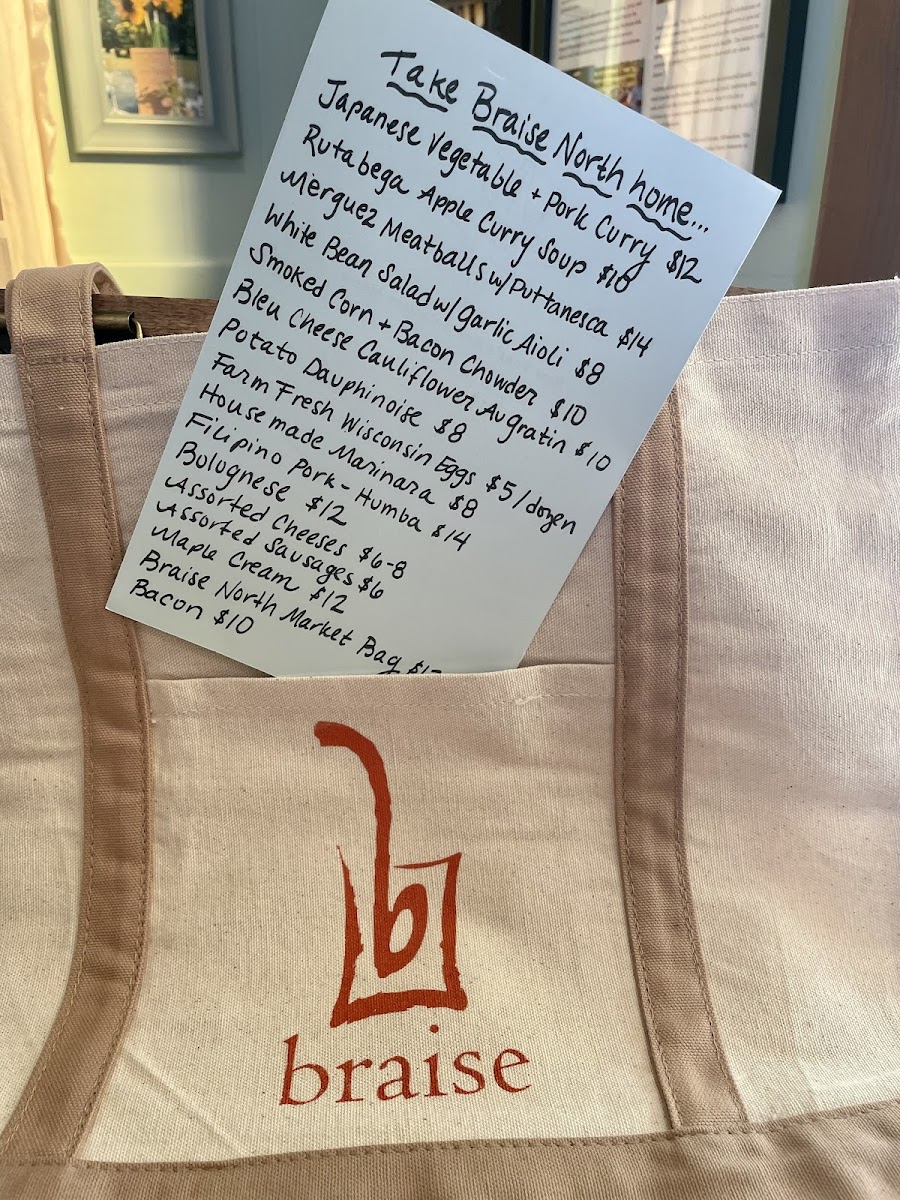 Take Braise North home...
Japanese Vegetable + Pork Curry $12
Rutabega Apple Curry Soup $10
Merguez Meatballs w/Puttanesca $14
White Bean Salad w/Garlic Aioli $8
Smoked Corn + Bacon Chowder $10
Bleu Cheese Cauliflower Au gratin $10
Potato Dauphinoise $8
Farm Fresh Wisconsin Eggs $5/dozen
Housemade Marinara $8
Filipino Pork-Humba $14
Bolognese $12
Assorted Cheeses $6-8
Assorted Sausages $6
Maple Cream $12
Braise North Market Bag
Bacon $10
b
braise